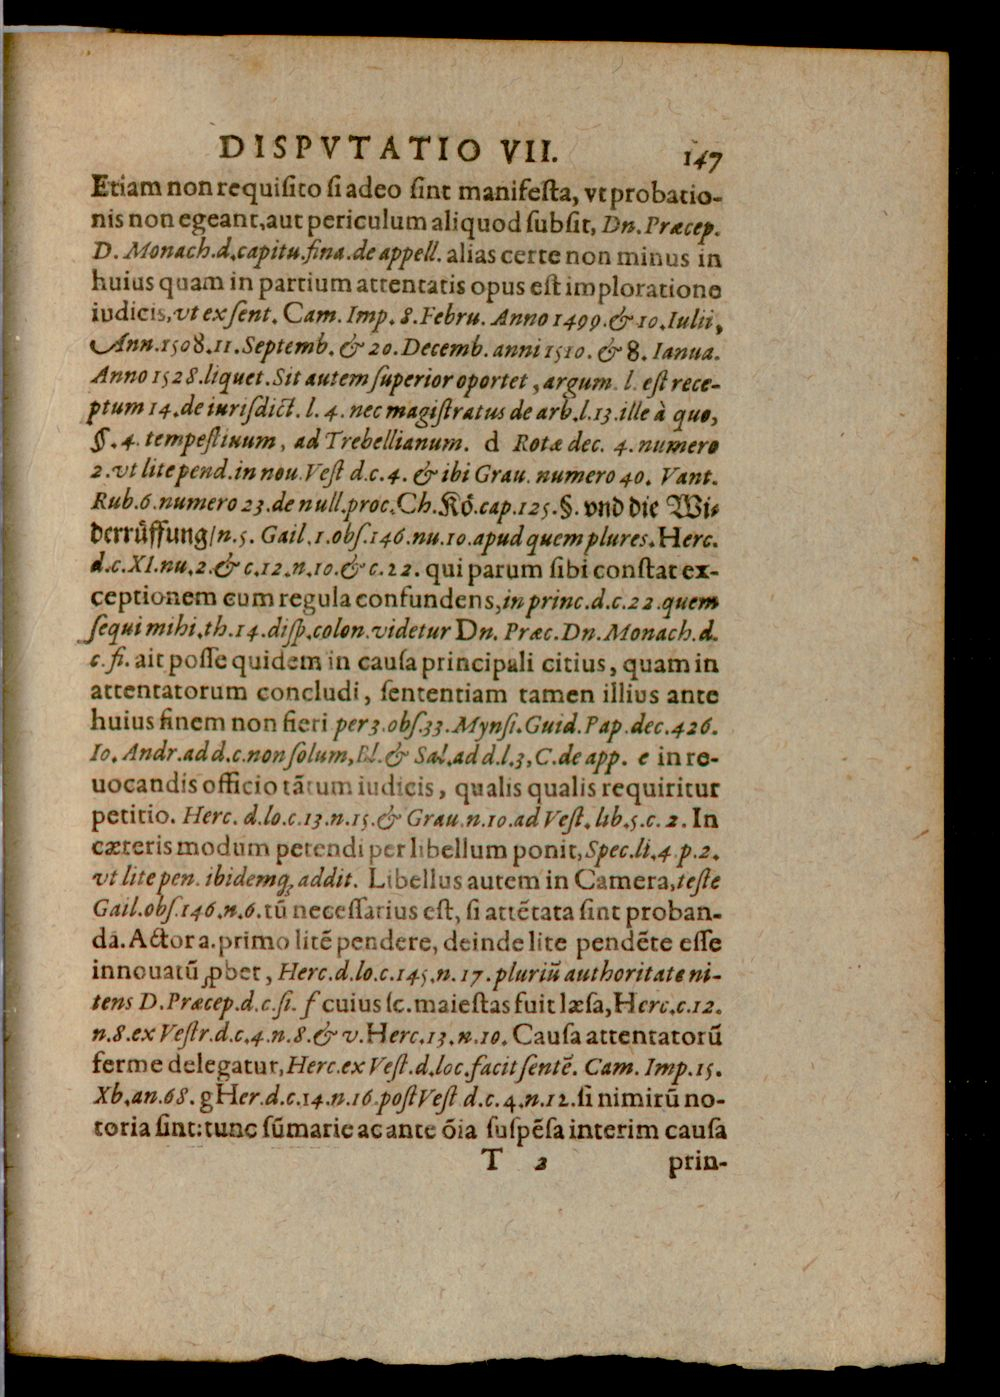 DISPVTATIO VII. 147
Etiam non requiſito ſi adeo ſint manifeſta, vt probatio-
nis non egeant, aut periculum aliquod ſubſit, Dn. Præcep.
D. Monach.d.capitu.fina.de appell. alias certe non minus in
huius quam in partium attentatis opus eſt imploratione
iudicis, vt ex ſent. Cam. Imp. 8. Febru. Anno 1499. & 10. Iulii,
Ann. 1508. 11. Septemb. & 20. Decemb. anni 1510. & 8. Ianua.
Anno 1528. liquet. Sit autem ſuperior oportet, argum. l. eſt rece-
ptum 14. de iuriſdict. l. 4. nec magiſtratus de arb. l. 13. ille à quo,
§. 4. tempeſtiuum, ad Trebellianum. d Rotæ dec. 4. numero
2. vt lite pend. in nou. Veſt d.c. 4. & ibi Grau. numero 40. Vant.
Rub. 6. numero 23. de null. proc. Ch. Kö. cap. 125. §. vnd die Wi-
derrüffung/ n. 5. Gail. 1. obſ. 146. nu. 10. apud quem plures. Herc.
d.c. XI. nu. 2. & c. 12. n. 10. & c. 22. qui parum ſibi conſtat ex-
ceptionem cum regula confundens, in princ. d.c. 22. quem
ſequi mihi. th. 14. diſp. colon. videtur Dn. Præc. Dn. Monach. d.
c. fi. ait poſſe quidem in cauſa principali citius, quam in
attentatorum concludi, ſententiam tamen illius ante
huius finem non fieri per 3. obſ. 33. Mynſi. Guid. Pap. dec. 426.
Io. Andr. ad d.c. non ſolum, Bl. & Sal. ad d.l. 3, C. de app. e in re-
uocandis officio tãtum iudicis, qualis qualis requiritur
petitio. Herc. d. lo. c. 13. n. 15. & Grau. n. 10. ad Veſt. lib. 5. c. 2. In
cæteris modum petendi per libellum ponit, Spec. li. 4. p. 2.
vt lite pen. ibidemq; addit. Libellus autem in Camera, teſte
Gail. obſ. 146. n. 6. tũ neceſſarius eſt, ſi attẽtata ſint proban-
da. Actor a. primo litẽ pendere, deinde lite pendẽte eſſe
innouatũ ꝓbet, Herc. d. lo. c. 145. n. 17. pluriũ authoritate ni-
tens D. Præcep. d.c. fi. f cuius ſc. maieſtas fuit læſa, Herc. c. 12.
n. 8. ex Veſtr. d.c. 4. n. 8. & v. Herc. 13. n. 10. Cauſa attentatorũ
ferme delegatur, Herc. ex Veſt. d. loc. facit ſentẽ. Cam. Imp. 15.
Xb. an. 68. g Her. d.c. 14. n. 16. poſt Veſt d.c. 4. n. 12. ſi nimirũ no-
toria ſint: tunc ſũmarie ac ante õia ſuſpẽſa interim cauſa
T 2 prin-